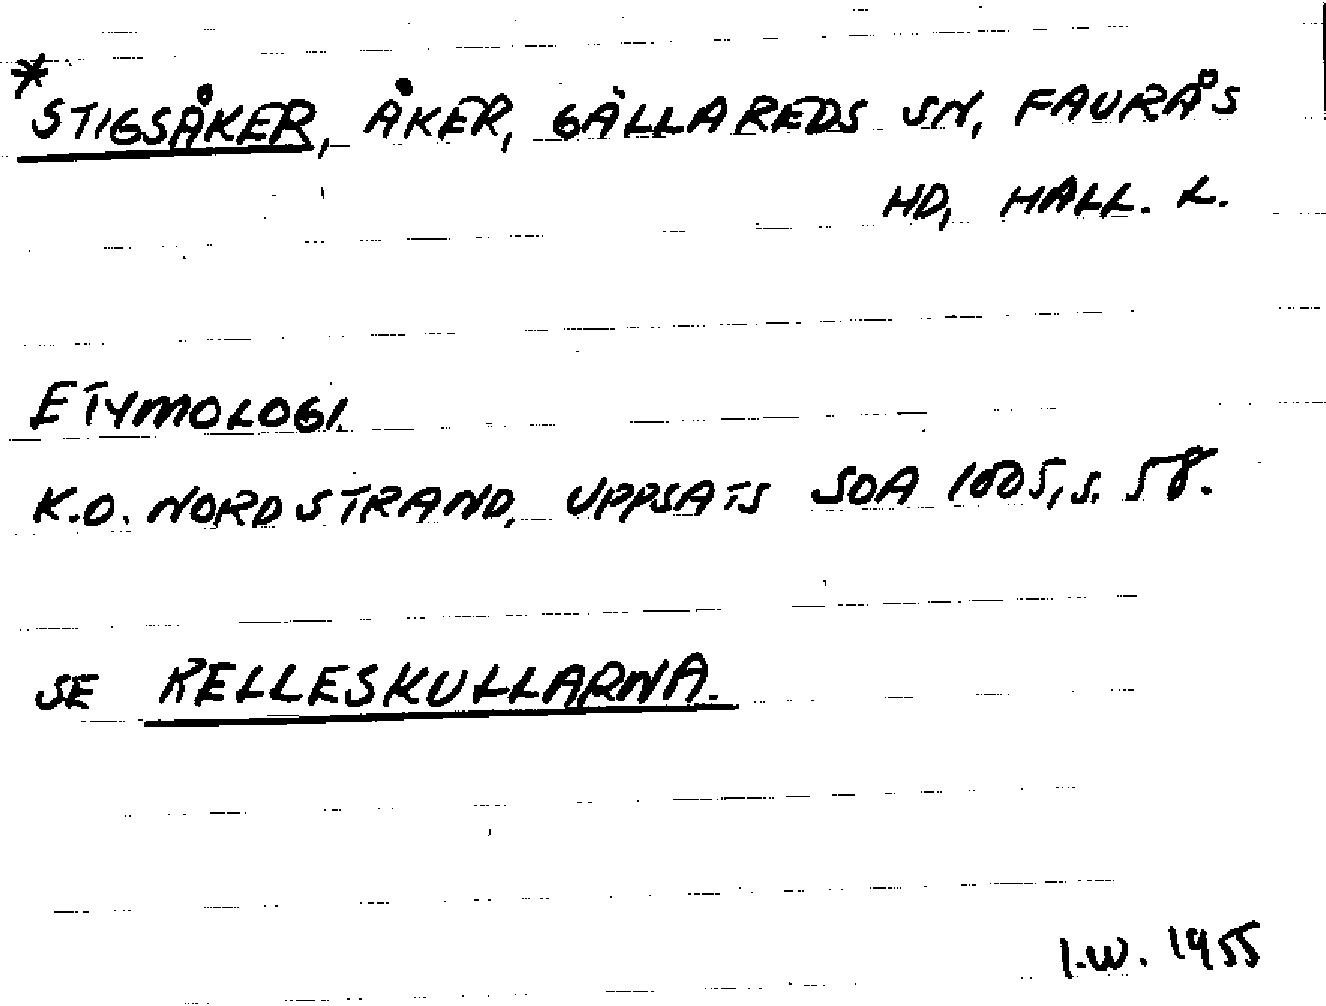 *STIGSÅKER, ÅKER, GÄLLAREDS SN, FAURÅS
HD, HALL. L.
ETYMOLOGI.
K.O. NORDSTRAND, UPPSATS SOA 1005, S. 58.
SE KELLESKULLARNA.
I.W. 1955